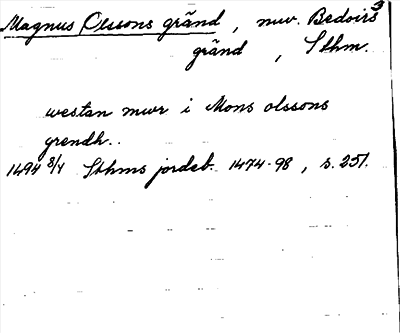 Magnus Olssons gränd, nuv. Bedoirs
gränd, Sthm.
westan mwr i Mons olssons
grendh..
1494 8/4 Sthms jordeb. 1474-98, s. 251.